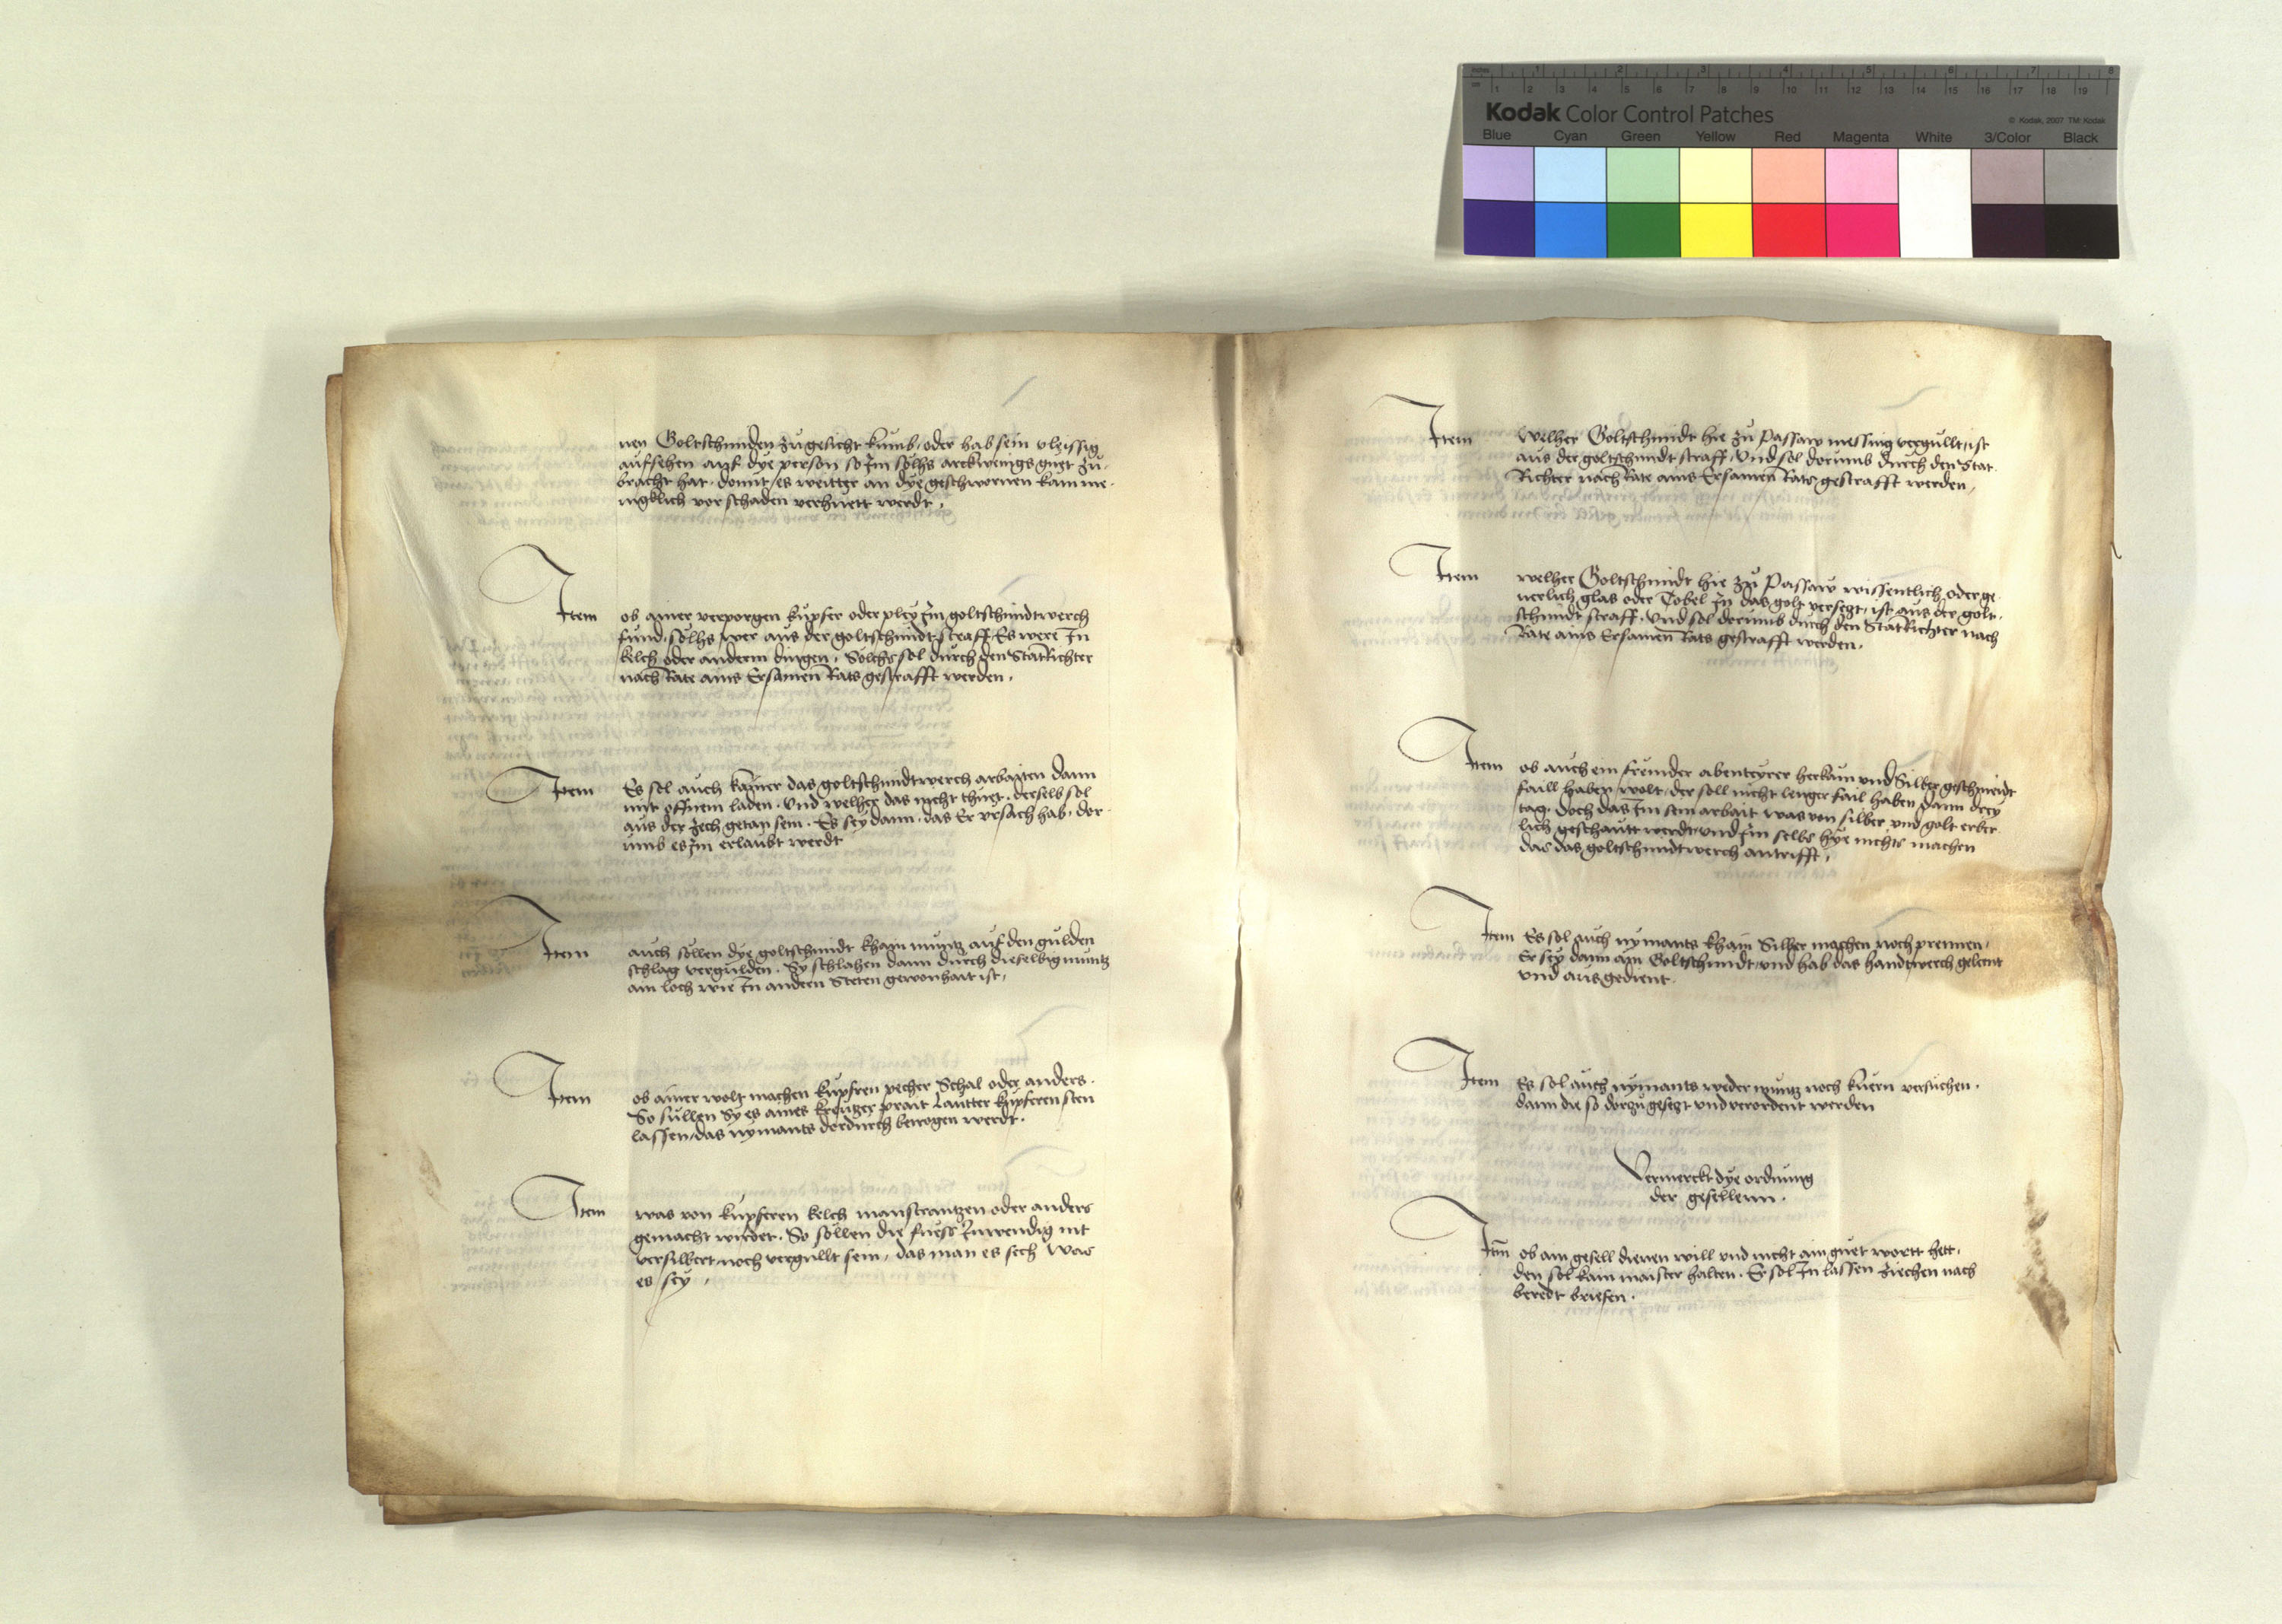 inches 1 2 3 4 5 6 7 8
cm 1 2 3 4 5 6 7 8 9 10 11 12 13 14 15 16 17 18 19
Kodak Color Control Patches
© Kodak, 2007 TM: Kodak
Blue Cyan Green Yellow Red Magenta White 3/Color Black
nen Goltschmiden zu gesicht kumb, oder hab sein vleissig
aufsehen auf dye person so Im sölhs arckwenigs guet zu
bracht hat, domit es weitter an dye geschwornen kam me
nigklich vor schaden verhuett werdt,
Item ob ainer verporgen kupfer oder pley Im goltschmidtwerch
fund, sölhs wer aus der goltschmidt straff, Es were In
kelch oder anderm dingen, Sölchs sol durch den StatRichter
nach Rate ains Ersamen Rats gestrafft werden,
Item Es sol auch kainer das goltschmidtwerch arbaiten dann
mit offnem laden. Und welher das nicht thuet, derselb sol
aus der zech getan sein. Es sey dann, das Er vrsach hab, dor
umb es Im erlaubt werdt
Item auch söllen dye goltschmidt khain muntz auf den gulden
schlag vergulden. Sy schlahen dann durch dieselbig muntz
ain loch wie In andern Steten gewonhait ist,
Item ob ainer wolt machen kupfren pecher Schal oder anders.
So sullen Sy es aines kreutzer prait Lautter kupferen sten
lassen, das nymants dordurch betrogen werdt.
Item was von kupferen kelch manstrantzen oder anders
gemacht wirdet. So söllen die fuess Inwendig nit
versilbert noch vergullt sein, das man es sech was
es sey,
Item Welher Goltschmidt hie zu Passaw messing vergullt, ist
aus der goltschmidt straff, Und sol dorumb durch den Stat
Richter nach Rate ains Ersamen Rats gestrafft werden,
Item welher Goltschmidt hie zu Passaw wissentlich oder ge
uerlich glas oder Tobel In das golt versetzt, ist aus der golt
schmidt straff, Und sol dorumb durch den StatRichter nach
Rate ains Ersamen Rats gestrafft werden,
Item ob auch ein frembder abenteyrer herkam und Silber geschmeidt
faill haben wolt, der soll nicht lenger fail haben dann drey
tag. Doch das Im sein arbait was von silber und golt erber
lich geschautt werdt, und Im selbs hye nichts machen
das das goltschmidtwerch antrifft,
Item Es sol auch nymants khain Silber machen noch prennen,
Er sey dann ain Goltschmidt, und hab das handtwerch gelernt
und ausgedient.
Item Es sol auch nymants weder muntz noch kuern versuchen.
dann die so dorzu gesetzt und verordent werden
Vermerckt dye ordnung
der gesellenn.
Itm ob ain gesell dienen will und nicht ain guet wortt hett,
den sol kain maister halten. Er sol In lassen ziechen nach
beredt briefen.